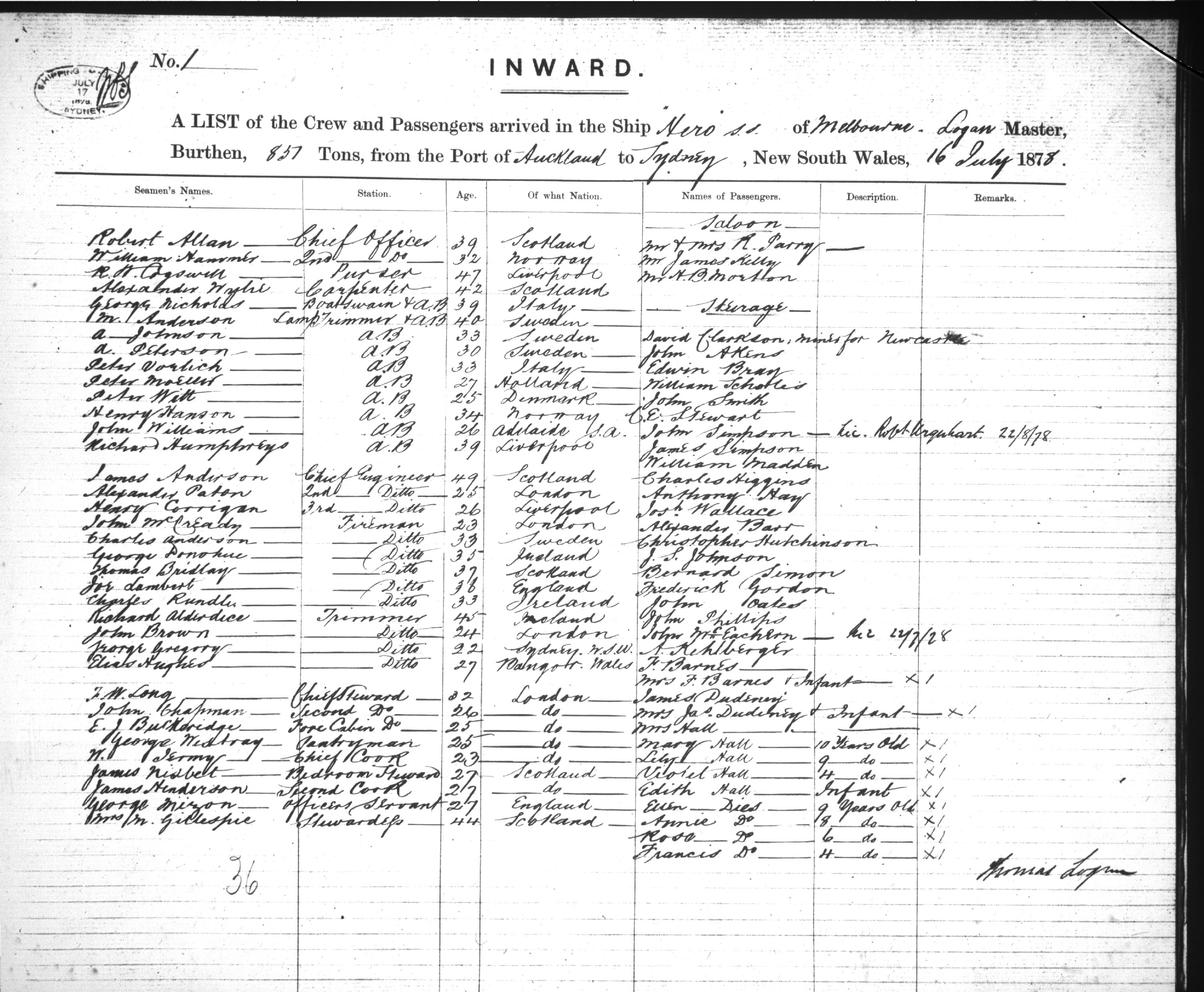 No. 1
SHIPPING
JULY
17
1878
SYDNEY.
INWARD.
A LIST of the Crew and Passengers arrived in the Ship Hero s.s. of Melbourne. Logan Master,
Burthen, 857 Tons, from the Port of Auckland to Sydney, New South Wales, 16 July 1878.
Seamen's Names. Station. Age. Of what Nation. Names of Passengers. Description. Remarks.
Saloon
Robert Allan Chief Officer 39 Scotland Mr & Mrs R. Parry
William Hammer 2nd Do 32 Norway Mr James Kelly
R. H. Cogswell Purser 47 Liverpool Mr H. B. Morton
Alexander Wylie Carpenter 42 Scotland
George Nicholas Boatswain & A.B 39 Italy Steerage
M. Anderson Lamp Trimmer & A.B 40 Sweden
A. Johnson A.B 33 Sweden David Clarkson, miner for Newcastle
A. Peterson A.B 30 Sweden John Akens
Peter A.B 33 Italy Edwin Bray
Peter Moeller A.B 27 Holland William
Peter Witt A.B 25 Denmark John Smith
Henry Hanson A.B 34 Norway C. E. Stewart
John Williams A.B 26 Adelaide S.A. John Simpson Lic. Robt Urquhart. 22/8/78
Richard Humphreys A.B 39 Liverpool James Simpson
William Madden
James Anderson Chief Engineer 49 Scotland Charles Higgins
Alexander Paton 2nd Ditto 25 London Anthony Hay
Henry Corrigan 3rd Ditto 26 Liverpool Josh Wallace
John McCready Fireman 23 London Alexander Barr
Charles Anderson Ditto 33 Sweden Christopher Hutchinson
George Donohue Ditto 35 Ireland J. S. Johnson
Thomas Ditto 37 Scotland Bernard Simon
Joe Lambert Ditto 38 England Frederick Gordon
Charles Rundle Ditto 33 Ireland John Oates
Richard Alderdice Trimmer 45 Ireland John Phillips
John Brown Ditto 24 London John McEachern 22/7/78
George Gregory Ditto 22 Sydney. N.S.W. A. Kehlberger
Elias Hughes Ditto 27 Bangor. Wales F. Barnes
Mrs F. Barnes & Infant X 1
F. W. Long Chief Steward 32 London James Dudeney
John Chapman Second Do 26 do Mrs Jas. Dudeney & Infant X 1
E. J. Fore Cabin Do 25 do Mrs Hall
George Pantryman 25 do Mary Hall 10 Years Old X 1
W. Jermy Chief Cook 23 do Lily Hall 9 do X 1
James Nisbet Bedroom Steward 27 Scotland Violet Hall 4 do X 1
James Henderson Second Cook 27 do Edith Hall Infant X 1
George Mixon Officers Servant 27 England Ellen Dies 9 Years Old X 1
Mrs M. Gillespie Stewardess 44 Scotland Annie Do 8 do X 1
Rosa Do 6 do X 1
Francis Do 4 do X 1
Thomas Logan
36